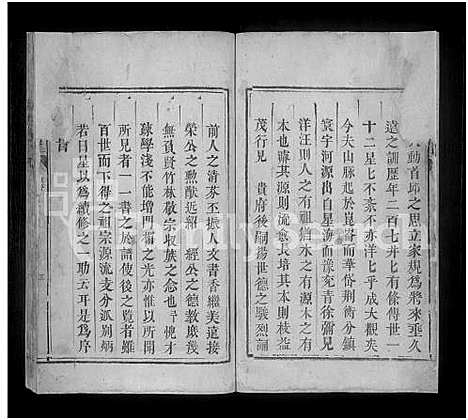 動首邱之思立家規爲將來垂久
遠之訓歷年二百七井七有條傳世一
十二星七不紊不亦洋七乎成大觀矣
今夫山脉起於崑崙而華岱荆衡分支
寰宇河源出自星海而豫兖青徐彌見
洋汪則人之有祖猶水之有源木之有
本也疇其源則流愈長培其本則枝益
茂行見 貴府後嗣揚世德之駿烈誦
前人之清芬丕振人文書香繼美遠接
榮公之勲猷延綿 經公之德教庶幾
無負賢竹林敬宗収族之念 俺才
踈學淺不能增門閭之光亦惟以所聞
所見者一一書之於譜使後之覽者雖
百世而下得之祖宗源流支分派别炳
若日星以爲續修之一助云耳是爲序